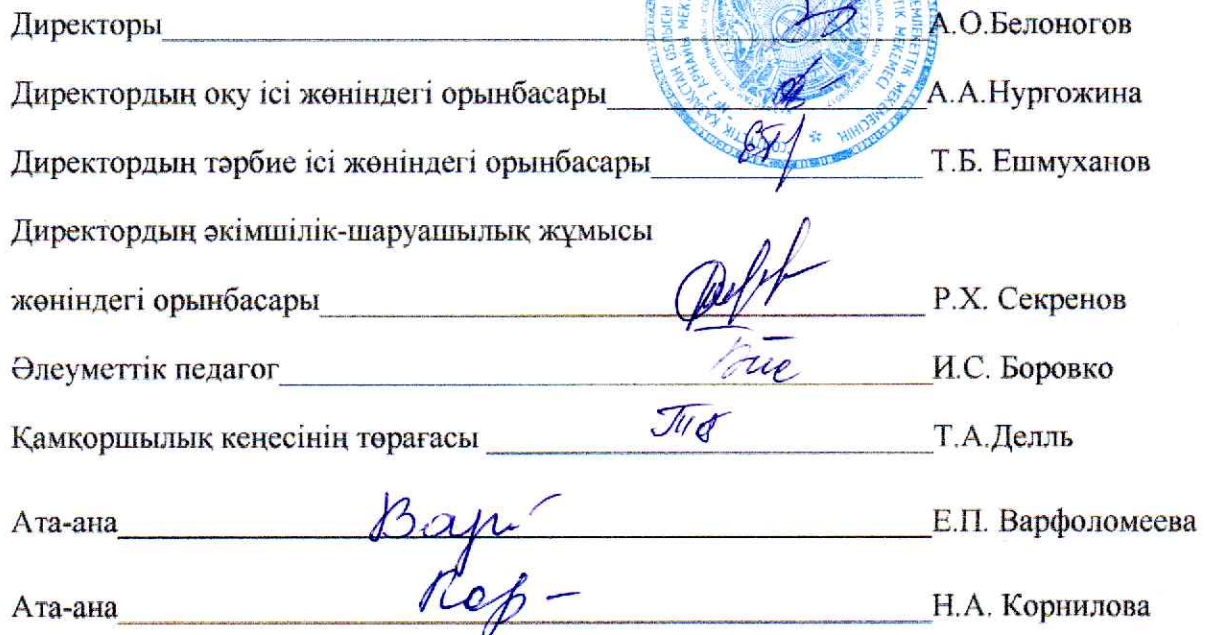 Директоры А.О.Белоногов
Директордың оқу ісі жөніндегі орынбасары А.А.Нургожина
Директордың тәрбие ісі жөніндегі орынбасары Т.Б. Ешмуханов
Директордың әкімшілік-шаруашылық жұмысы
жөніндегі орынбасары Р.Х. Секренов
Әлеуметтік педагог И.С. Боровко
Қамқоршылық кеңесінің төрағасы Т.А.Делль
Ата-ана Е.П. Варфоломеева
Ата-ана Н.А. Корнилова